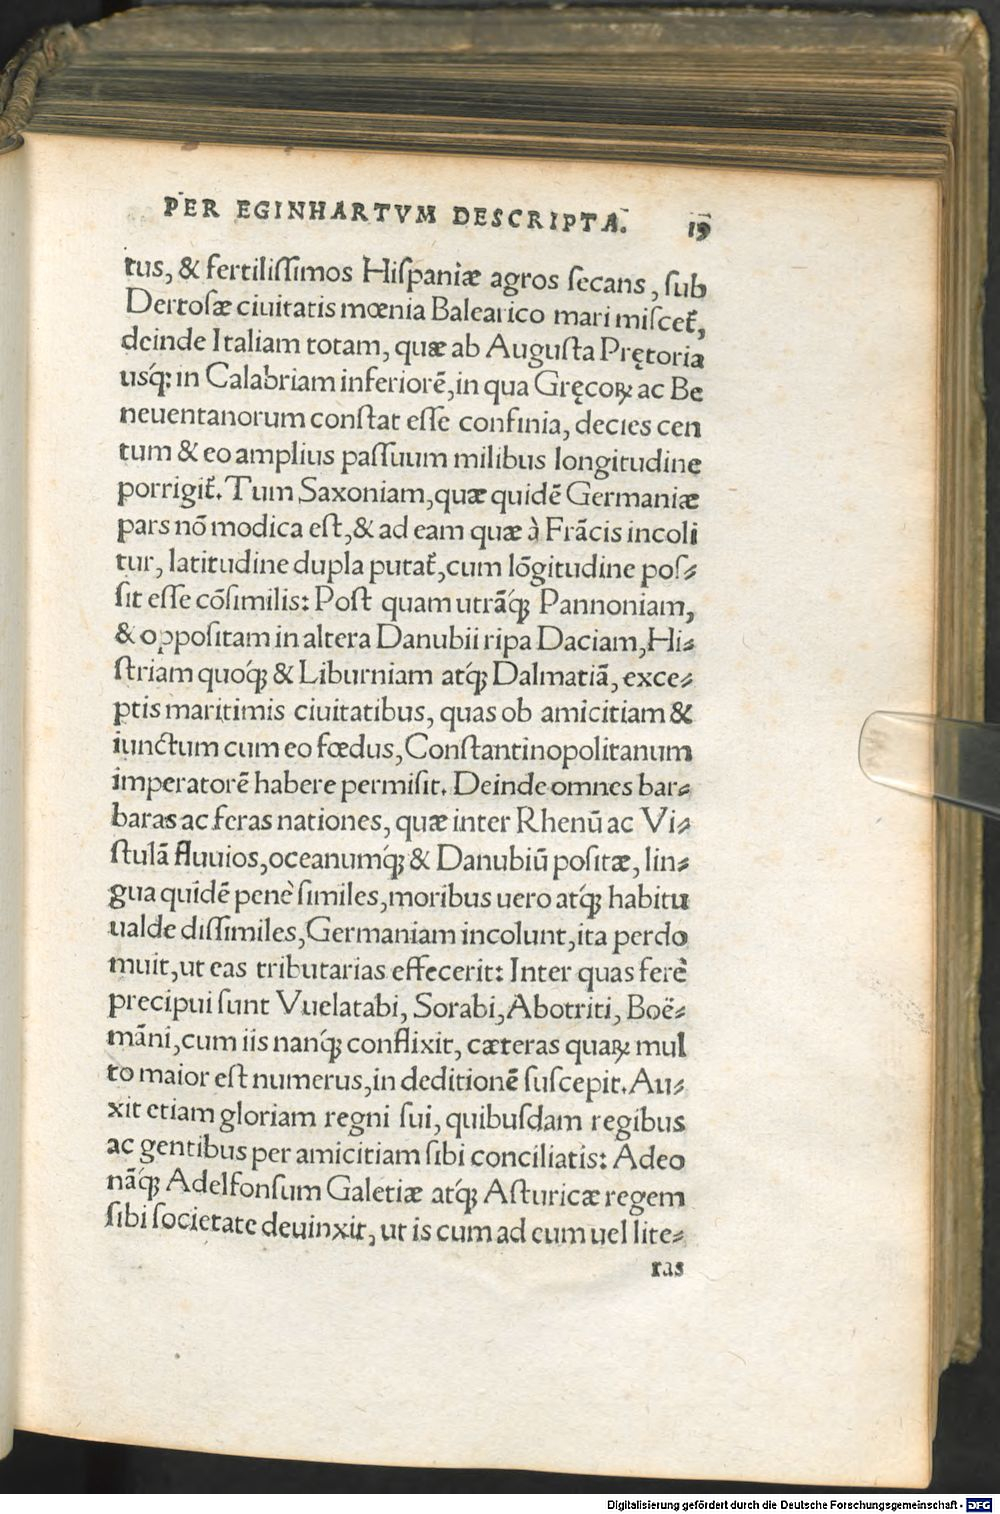 PER EGINHARTVM DESCRIPTA. 19
tus, & fertilissimos Hispaniæ agros secans, sub
Dertosæ ciuitatis mœnia Balearico mari miscet᷑,
deinde Italiam totam, quæ ab Augusta Prętoria
usq́; in Calabriam inferiorẽ, in qua Gręcoꝝ ac Be
neuentanorum constat esse confinia, decies cen
tum & eo amplius passuum milibus longitudine
porrigit᷑. Tum Saxoniam, quæ quidẽ Germaniæ
pars nõ modica est, & ad eam quæ à Frãcis incoli
tur, latitudine dupla putat᷑, cum lõgitudine pos⸗
sit esse cõsimilis: Post quam utrãq́; Pannoniam,
& oppositam in altera Danubii ripa Daciam, Hi⸗
striam quoq́; & Liburniam atq́; Dalmatiã, exce⸗
ptis maritimis ciuitatibus, quas ob amicitiam &
iunctum cum eo fœdus, Constantinopolitanum
imperatorẽ habere permisit. Deinde omnes bar⸗
baras ac feras nationes, quæ inter Rhenũ ac Vi⸗
stulã fluuios, oceanumq́; & Danubiũ positæ, lin⸗
gua quidẽ penè similes, moribus uero atq́; habitu
ualde dissimiles, Germaniam incolunt, ita perdo
muit, ut eas tributarias effecerit: Inter quas ferè
precipui sunt Vuelatabi, Sorabi, Abotriti, Boë⸗
mãni, cum iis nanq́; conflixit, cæteras quaꝝ mul
to maior est numerus, in deditionẽ suscepit. Au⸗
xit etiam gloriam regni sui, quibusdam regibus
ac gentibus per amicitiam sibi conciliatis: Adeo
nãq́; Adelfonsum Galetiæ atq́; Asturicæ regem
sibi societate deuinxit, ut is cum ad eum uel lite⸗
ras
Digitalisierung gefördert durch die Deutsche Forschungsgemeinschaft - DFG